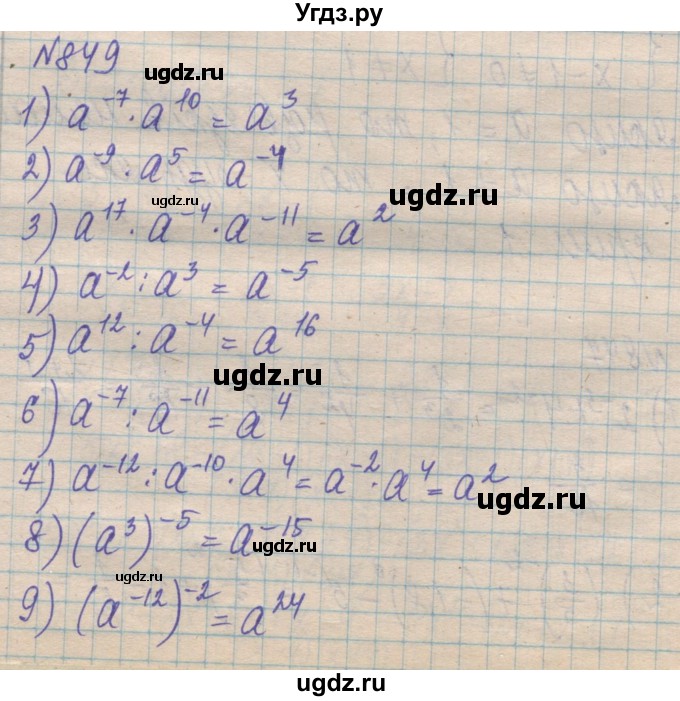 Угдз.ру
№849
ugdz.ru
1) a⁻⁷ · a¹⁰ = a³
ugdz.ru
2) a⁻⁹ · a⁵ = a⁻⁴
ugdz.ru
3) a¹⁷ · a⁻⁴ · a⁻¹¹ = a²
ugdz.ru
4) a⁻² : a³ = a⁻⁵
ugdz.ru
5) a¹² : a⁻⁴ = a¹⁶
ugdz.ru
6) a⁻⁷ : a⁻¹¹ = a⁴
ugdz.ru
7) a⁻¹² : a⁻¹⁰ · a⁴ = a⁻² · a⁴ = a²
ugdz.ru
8) (a³)⁻⁵ = a⁻¹⁵
ugdz.ru
ugdz.ru
9) (a⁻¹²)⁻² = a²⁴
ugdz.ru
ugdz.ru